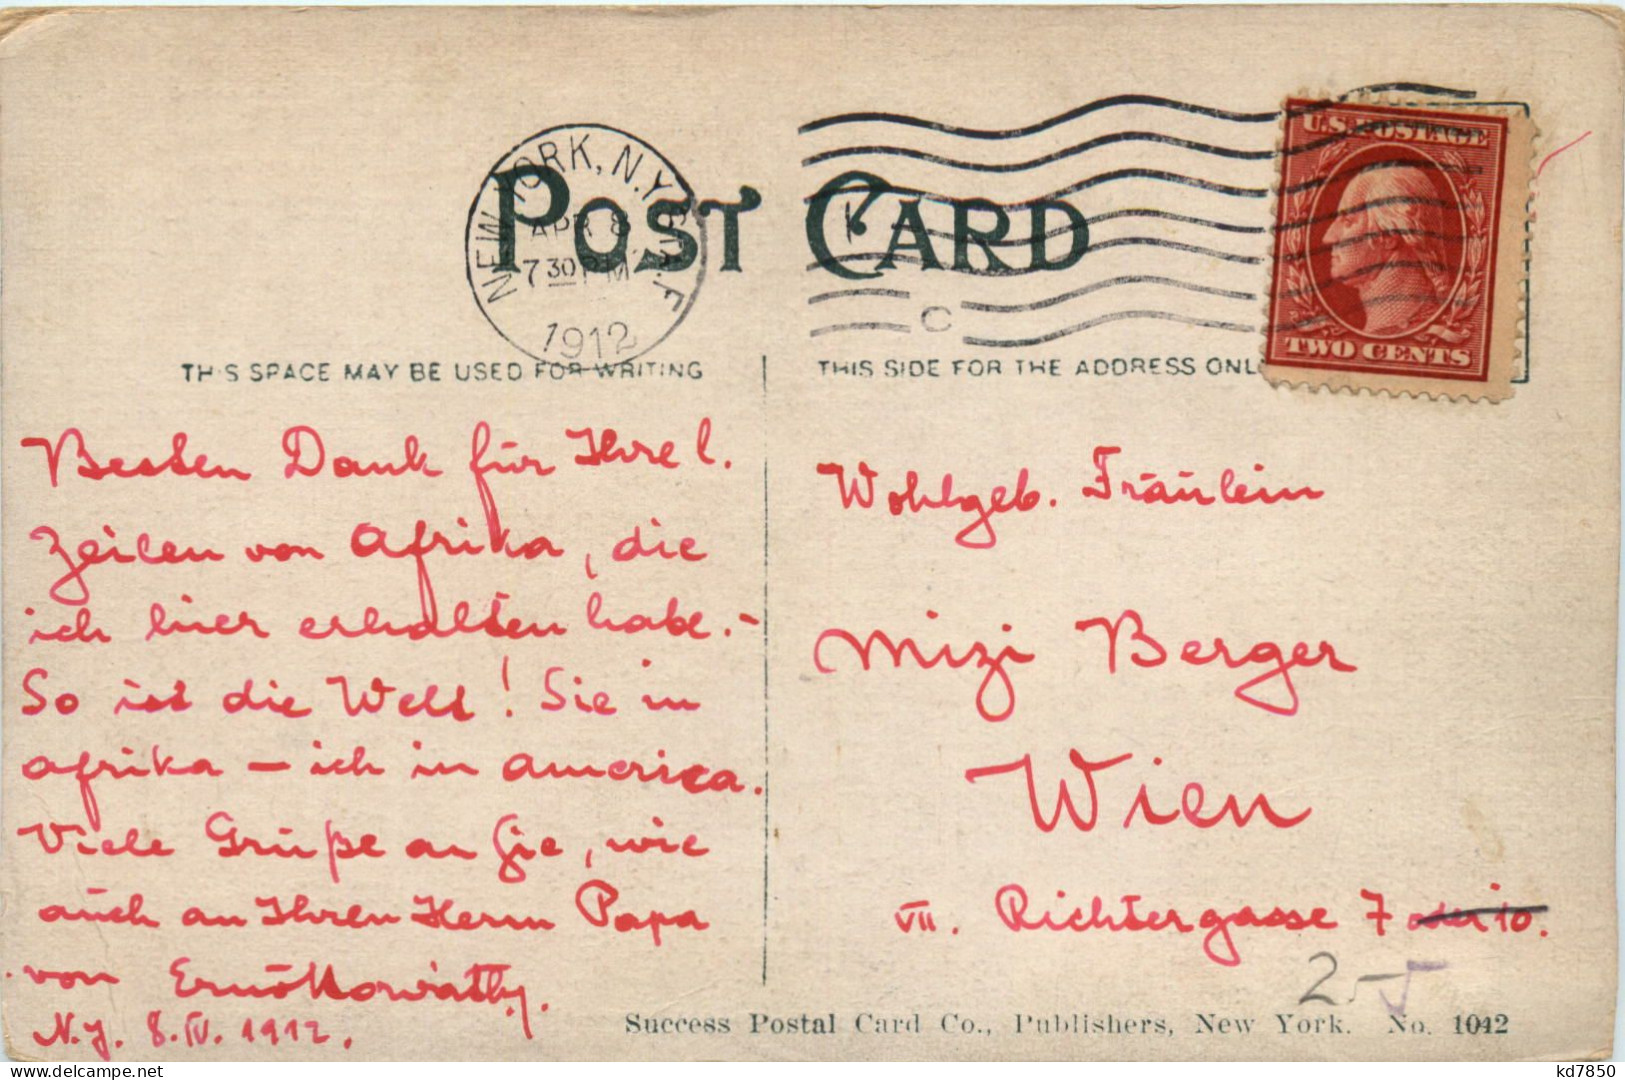 POST CARD
NEW YORK, N.Y.
APR 8
7 30 PM
1912
C
U.S. POSTAGE
TWO CENTS
THIS SPACE MAY BE USED FOR WRITING
THIS SIDE FOR THE ADDRESS ONL
Besten Dank für Ihre l.
Zeilen von Afrika, die
ich hier erhalten habe.-
So ist die Welt! Sie in
Afrika – ich in America.
Viele Grüße an Sie, wie
auch an Ihren Herrn Papa
von Ernö
N.Y. 8.IV. 1912.
Wohlgeb. Fräulein
Mizi Berger
Wien
VII. Richtergasse 7 oder 10.
2-
Success Postal Card Co., Publishers, New York. No. 1042
kd7850